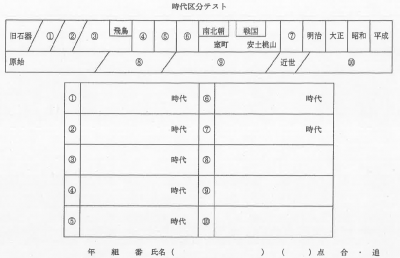 時代区分テスト
旧石器 ① ② ③ 飛鳥 ④ ⑤ ⑥ 南北朝 戦国 ⑦ 明治 大正 昭和 平成
室町 安土桃山
原始 ⑧ ⑨ 近世 ⑩
① 時代 ⑥ 時代
② 時代 ⑦ 時代
③ 時代 ⑧
④ 時代 ⑨
⑤ 時代 ⑩
年 組 番 氏名 ( ) ( ) 点 合 ・ 追